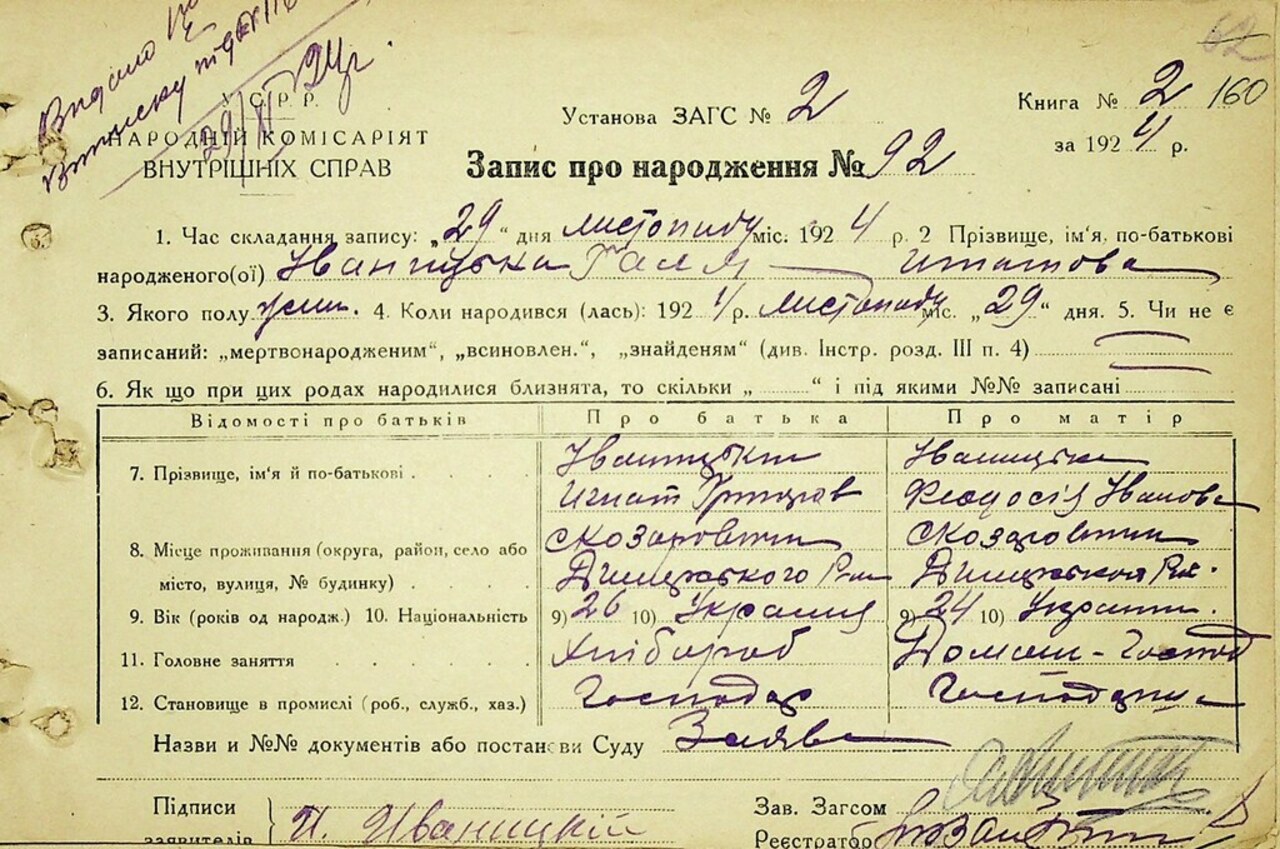 Видано
витяску
29/XI 24 р.
62
У.С.Р.Р.
НАРОДНІЙ КОМІСАРІЯТ
ВНУТРІШНІХ СПРАВ
Установа ЗАГС № 2
Книга № 2 160
за 1924 р.
Запис про народження № 92
1. Час складання запису: „29“ дня листопаду міс. 1924 р. 2 Прізвище, ім'я, по-батькові
народженого(ої) Іваницька Галя Игнатова
3. Якого полу жін. 4. Коли народився (лась): 1924 р. листопаду міс. „29“ дня. 5. Чи не є
записаний: „мертвонародженим“, „всиновлен.“, „знайденям“ (див. Інстр. розд. III п. 4)
6. Як що при цих родах народилися близнята, то скільки „ “ і під якими №№ записані
Відомості про батьків Про батька Про матір
7. Прізвище, ім'я й по-батькові Іваницкий Іваницька
Игнат Григоров Феодосія Іванова
8. Місце проживання (округа, район, село або
місто, вулиця, № будинку)
9. Вік (років од народж.) 10. Національність 9) 26 10) Украинец 9) 24 10) Украин.
11. Головне заняття Хлібороб Домаш-Господ
12. Становище в промислі (роб., служб., хаз.) Господар Господарка
Назви и №№ документів або постанови Суду Заява
Підписи
заявителів И. Иваницкій
Зав. Загсом
Реєстратор